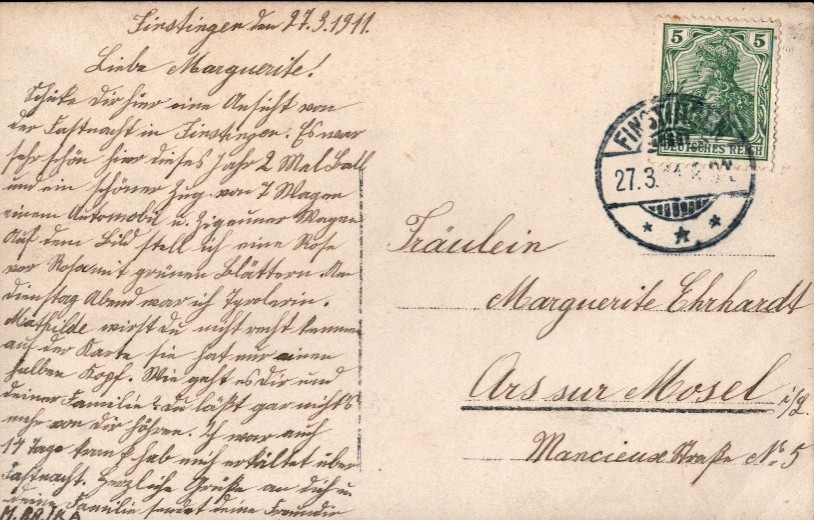 Finstingen den 27.3.1911.
Liebe Marguerite!
Schicke Dir hier eine Ansicht von
der Fastnacht in Finstingen. Es war
sehr schön hier dieses Jahr 2 Mal Ball
und ein schöner Zug von 7 Wagen
einem Automobil u. Zigeuner Wagen
Auf dem Bild stell ich eine Rose
vor Rosa mit grünen Blättern Am
Dienstag Abend war ich Tyrolerin.
Mathilde wirst Du nicht recht kennen
auf der Karte sie hat nur einen
halben Kopf. Wie geht es Dir und
deiner Familie? Du läßt gar nichts
mehr von Dir höhren. Ich war auch
14 Tage krank hab mich erkältet über
Fastnacht. Herzliche Grüße an dich u
deine Familie sendet deine Freundin
5 5
DEUTSCHES REICH
FINSTINGEN
27.3.
Fräulein
Marguerite Ehrhardt
Ars sur Mosel i/L.
Mancieux Straße No 5